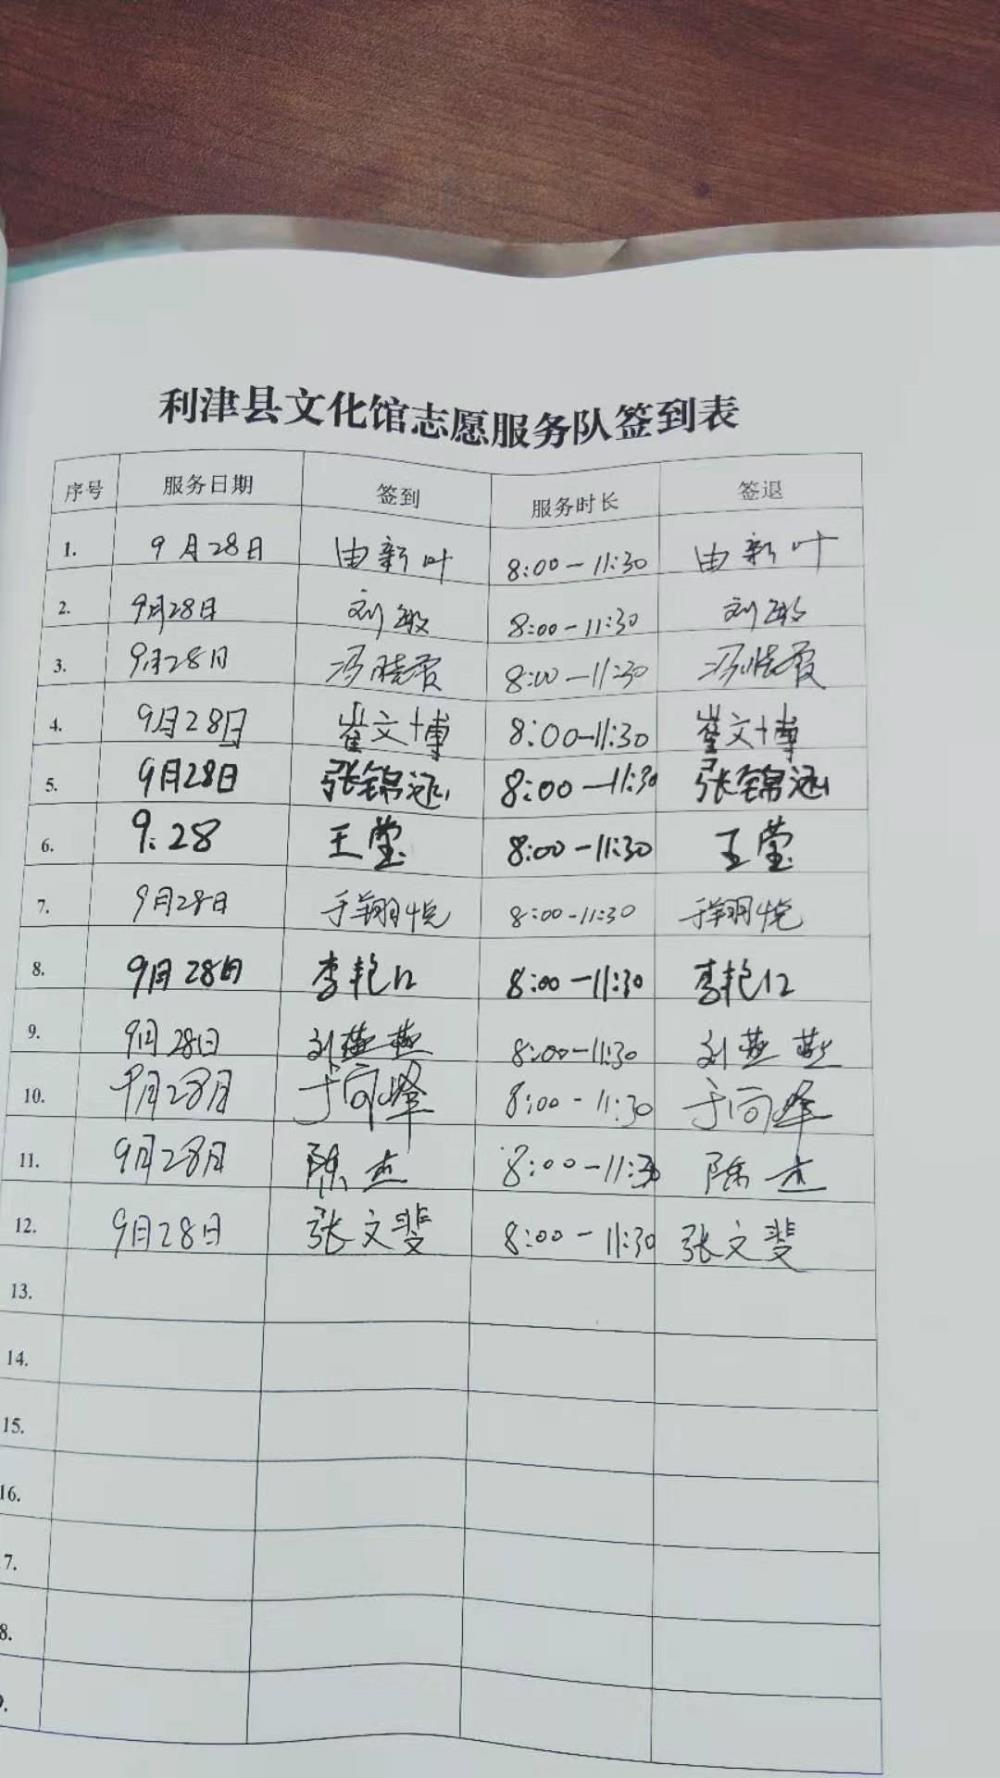 利津县文化馆志愿服务队签到表
序号 服务日期 签到 服务时长 签退
1. 9月28日 由新叶 8:00-11:30 由新叶
2. 9月28日 刘敏 8:00-11:30 刘敏
3. 9月28日 冯晓霞 8:00-11:30 冯晓霞
4. 9月28日 崔文博 8:00-11:30 崔文博
5. 9月28日 张锦涵 8:00-11:30 张锦涵
6. 9.28 王莹 8:00-11:30 王莹
7. 9月28日 于翔悦 8:00-11:30 于翔悦
8. 9月28日 李艳红 8:00-11:30 李艳红
9. 9月28日 刘燕燕 8:00-11:30 刘燕燕
10. 9月28月 于向峰 8:00-11:30 于向峰
11. 9月28月 陈杰 8:00-11:30 陈杰
12. 9月28日 张文斐 8:00-11:30 张文斐
13.
14.
15.
16.
7.
8.
9.